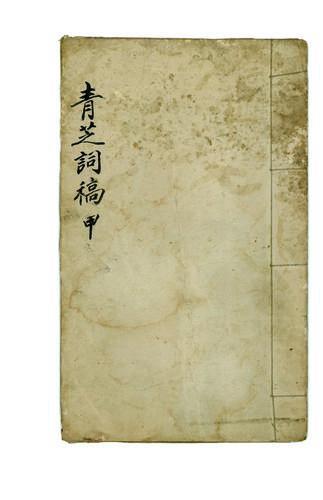 青芝詞稿 甲